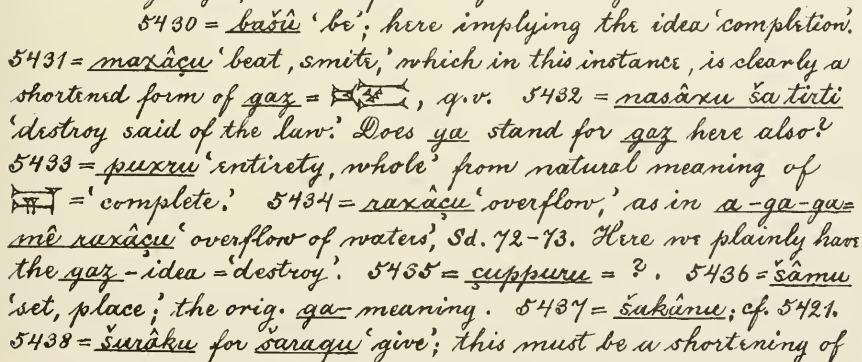 5430 = bašû ‘be’; here implying the idea ‘completion’.
5431 = maxâçu ‘beat, smite,’ which in this instance, is clearly a
shortened form of gaz = , q.v. 5432 = nasâxu ša tirti
‘destroy said of the law.’ Does ga stand for gaz here also?
5433 = puxru ‘entirety, whole’ from natural meaning of
= ‘complete.’ 5434 = raxâçu ‘overflow,’ as in a-ga-ga=
mê raxâçu ‘overflow of waters’, Sd. 72-73. Here we plainly have
the gaz-idea = ‘destroy’. 5435 = çuppuru = ?. 5436 = šâmu
‘set, place’; the orig. ga- meaning. 5437 = šakânu; cf. 5421.
5438 = šurâku for šaraqu ‘give’; this must be a shortening of